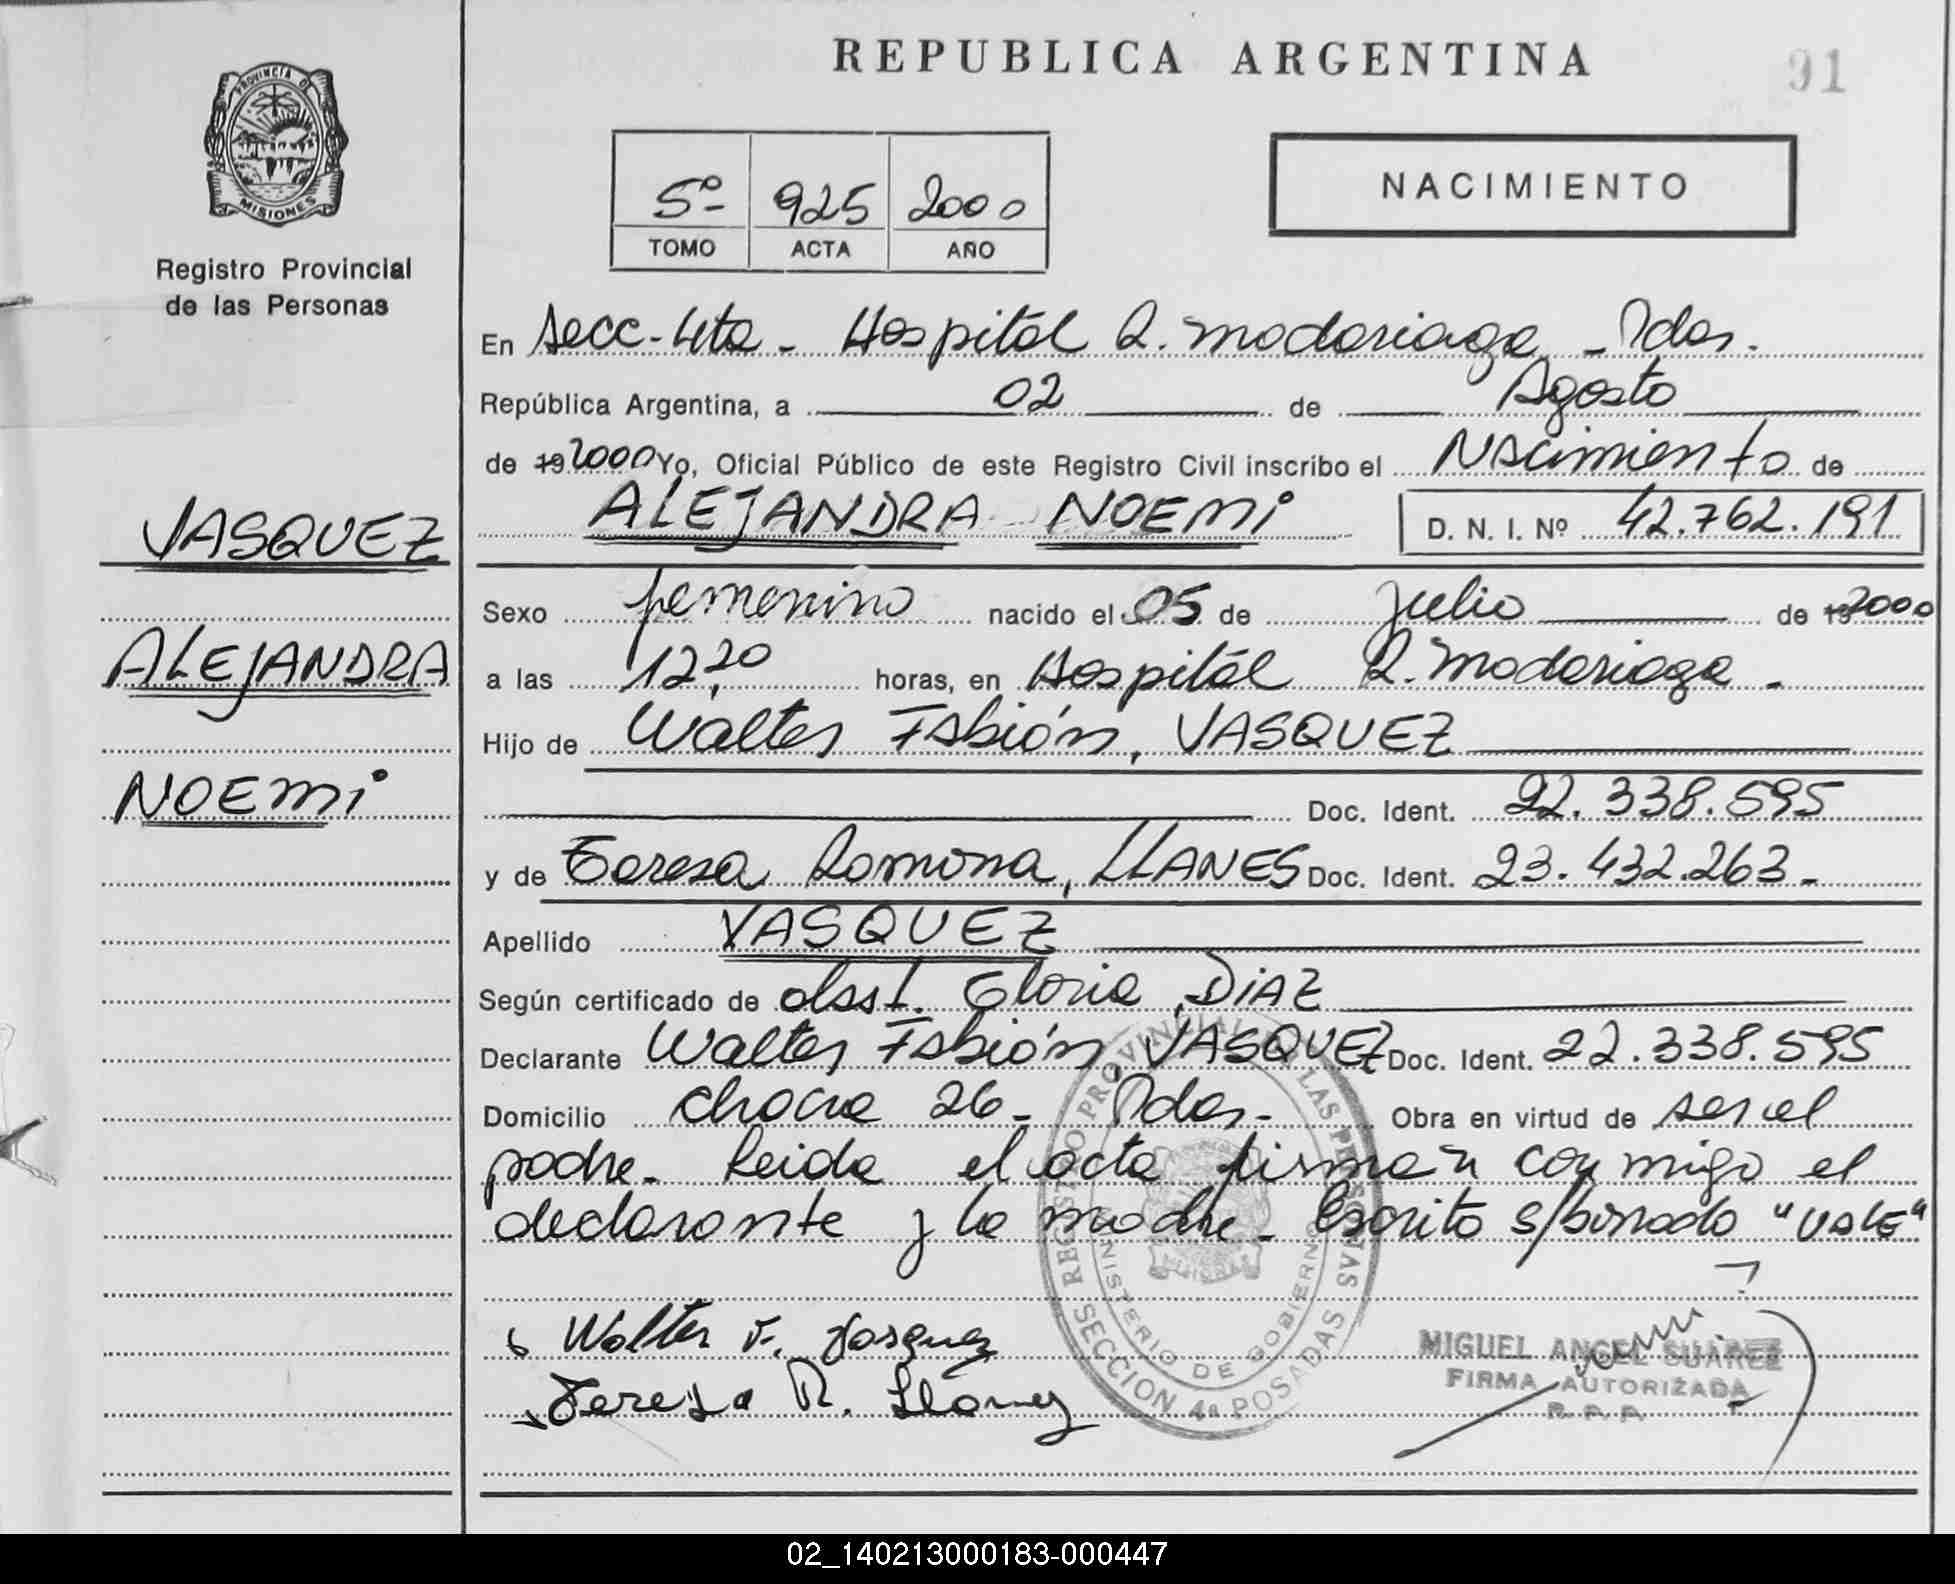 REPUBLICA ARGENTINA
91
PROVINCIA DE
MISIONES
Registro Provincial
de las Personas
5º 925 2000
TOMO ACTA AÑO
NACIMIENTO
En Secc-4ta - Hospital R. Madariaga - Pdas.
República Argentina, a 02 de Agosto
de 19 2000 Yo, Oficial Público de este Registro Civil inscribo el Nacimiento de
ALEJANDRA NOEMI D. N. I. Nº 42.762.191
VASQUEZ
ALEJANDRA
NOEMI
Sexo femenino nacido el 05 de Julio de 19 2000
a las 12,20 horas, en Hospital R. Madariaga -
Hijo de Walter Fabián, VASQUEZ
Doc. Ident. 22.338.595
y de Teresa Ramona, LLANES Doc. Ident. 23.432.263-
Apellido VASQUEZ
Según certificado de Gloria DIAZ
Declarante Walter Fabián VASQUEZ Doc. Ident. 22.338.595
Domicilio chacra 26- Pdas- Obra en virtud de ser el
padre- Leida el acta firman conmigo el
declarante y la madre- Escrito s/borrado "VALE"
REGISTRO PROVINCIAL DE LAS PERSONAS
MINISTERIO DE GOBIERNO
MISIONES
SECCION 4a POSADAS
Walter F. Vasquez
Teresa R. Llanes
MIGUEL ANGEL SUAREZ
FIRMA AUTORIZADA
R. P. P.
02_140213000183-000447